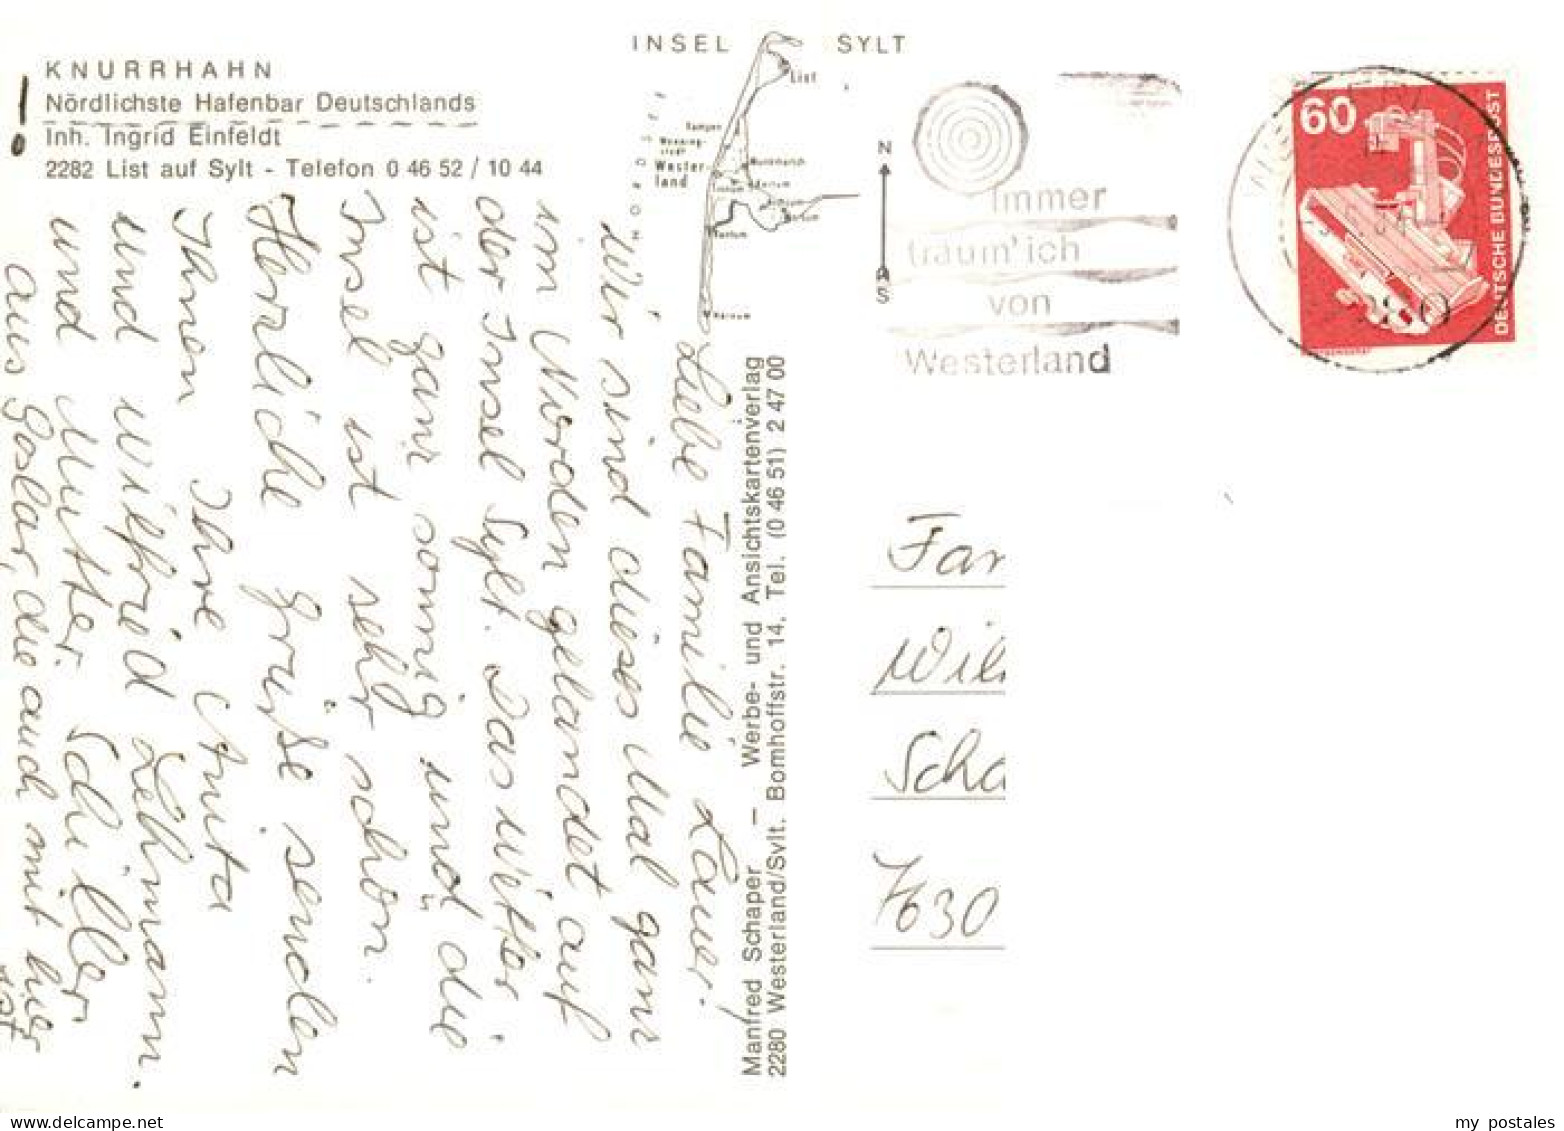 KNURRHAHN
Nördlichste Hafenbar Deutschlands
Inh. Ingrid Einfeldt
2282 List auf Sylt - Telefon 0 46 52 / 10 44
INSEL SYLT
List
Kampen
Wester-
land
Rantum
Hörnum
NORDSEE
N
S
Immer
träum' ich
von
Westerland
60
DEUTSCHE BUNDESPOST
2280
Liebe Familie Lauer!
Wir sind dieses Mal ganz
im Norden gelandet auf
der Insel Sylt. Das Wetter
ist ganz sonnig und die
Insel ist sehr schön.
Herzliche Grüße senden
Ihnen Ihre Anita
und Wilfried Lehmann.
und Mutter Schiller
aus Goslar, die auch mit hier
ist
Manfred Schaper — Werbe- und Ansichtskartenverlag
2280 Westerland/Sylt. Bomhoffstr. 14, Tel. (0 46 51) 2 47 00
Fam
Wil
Scha
7630
my postales